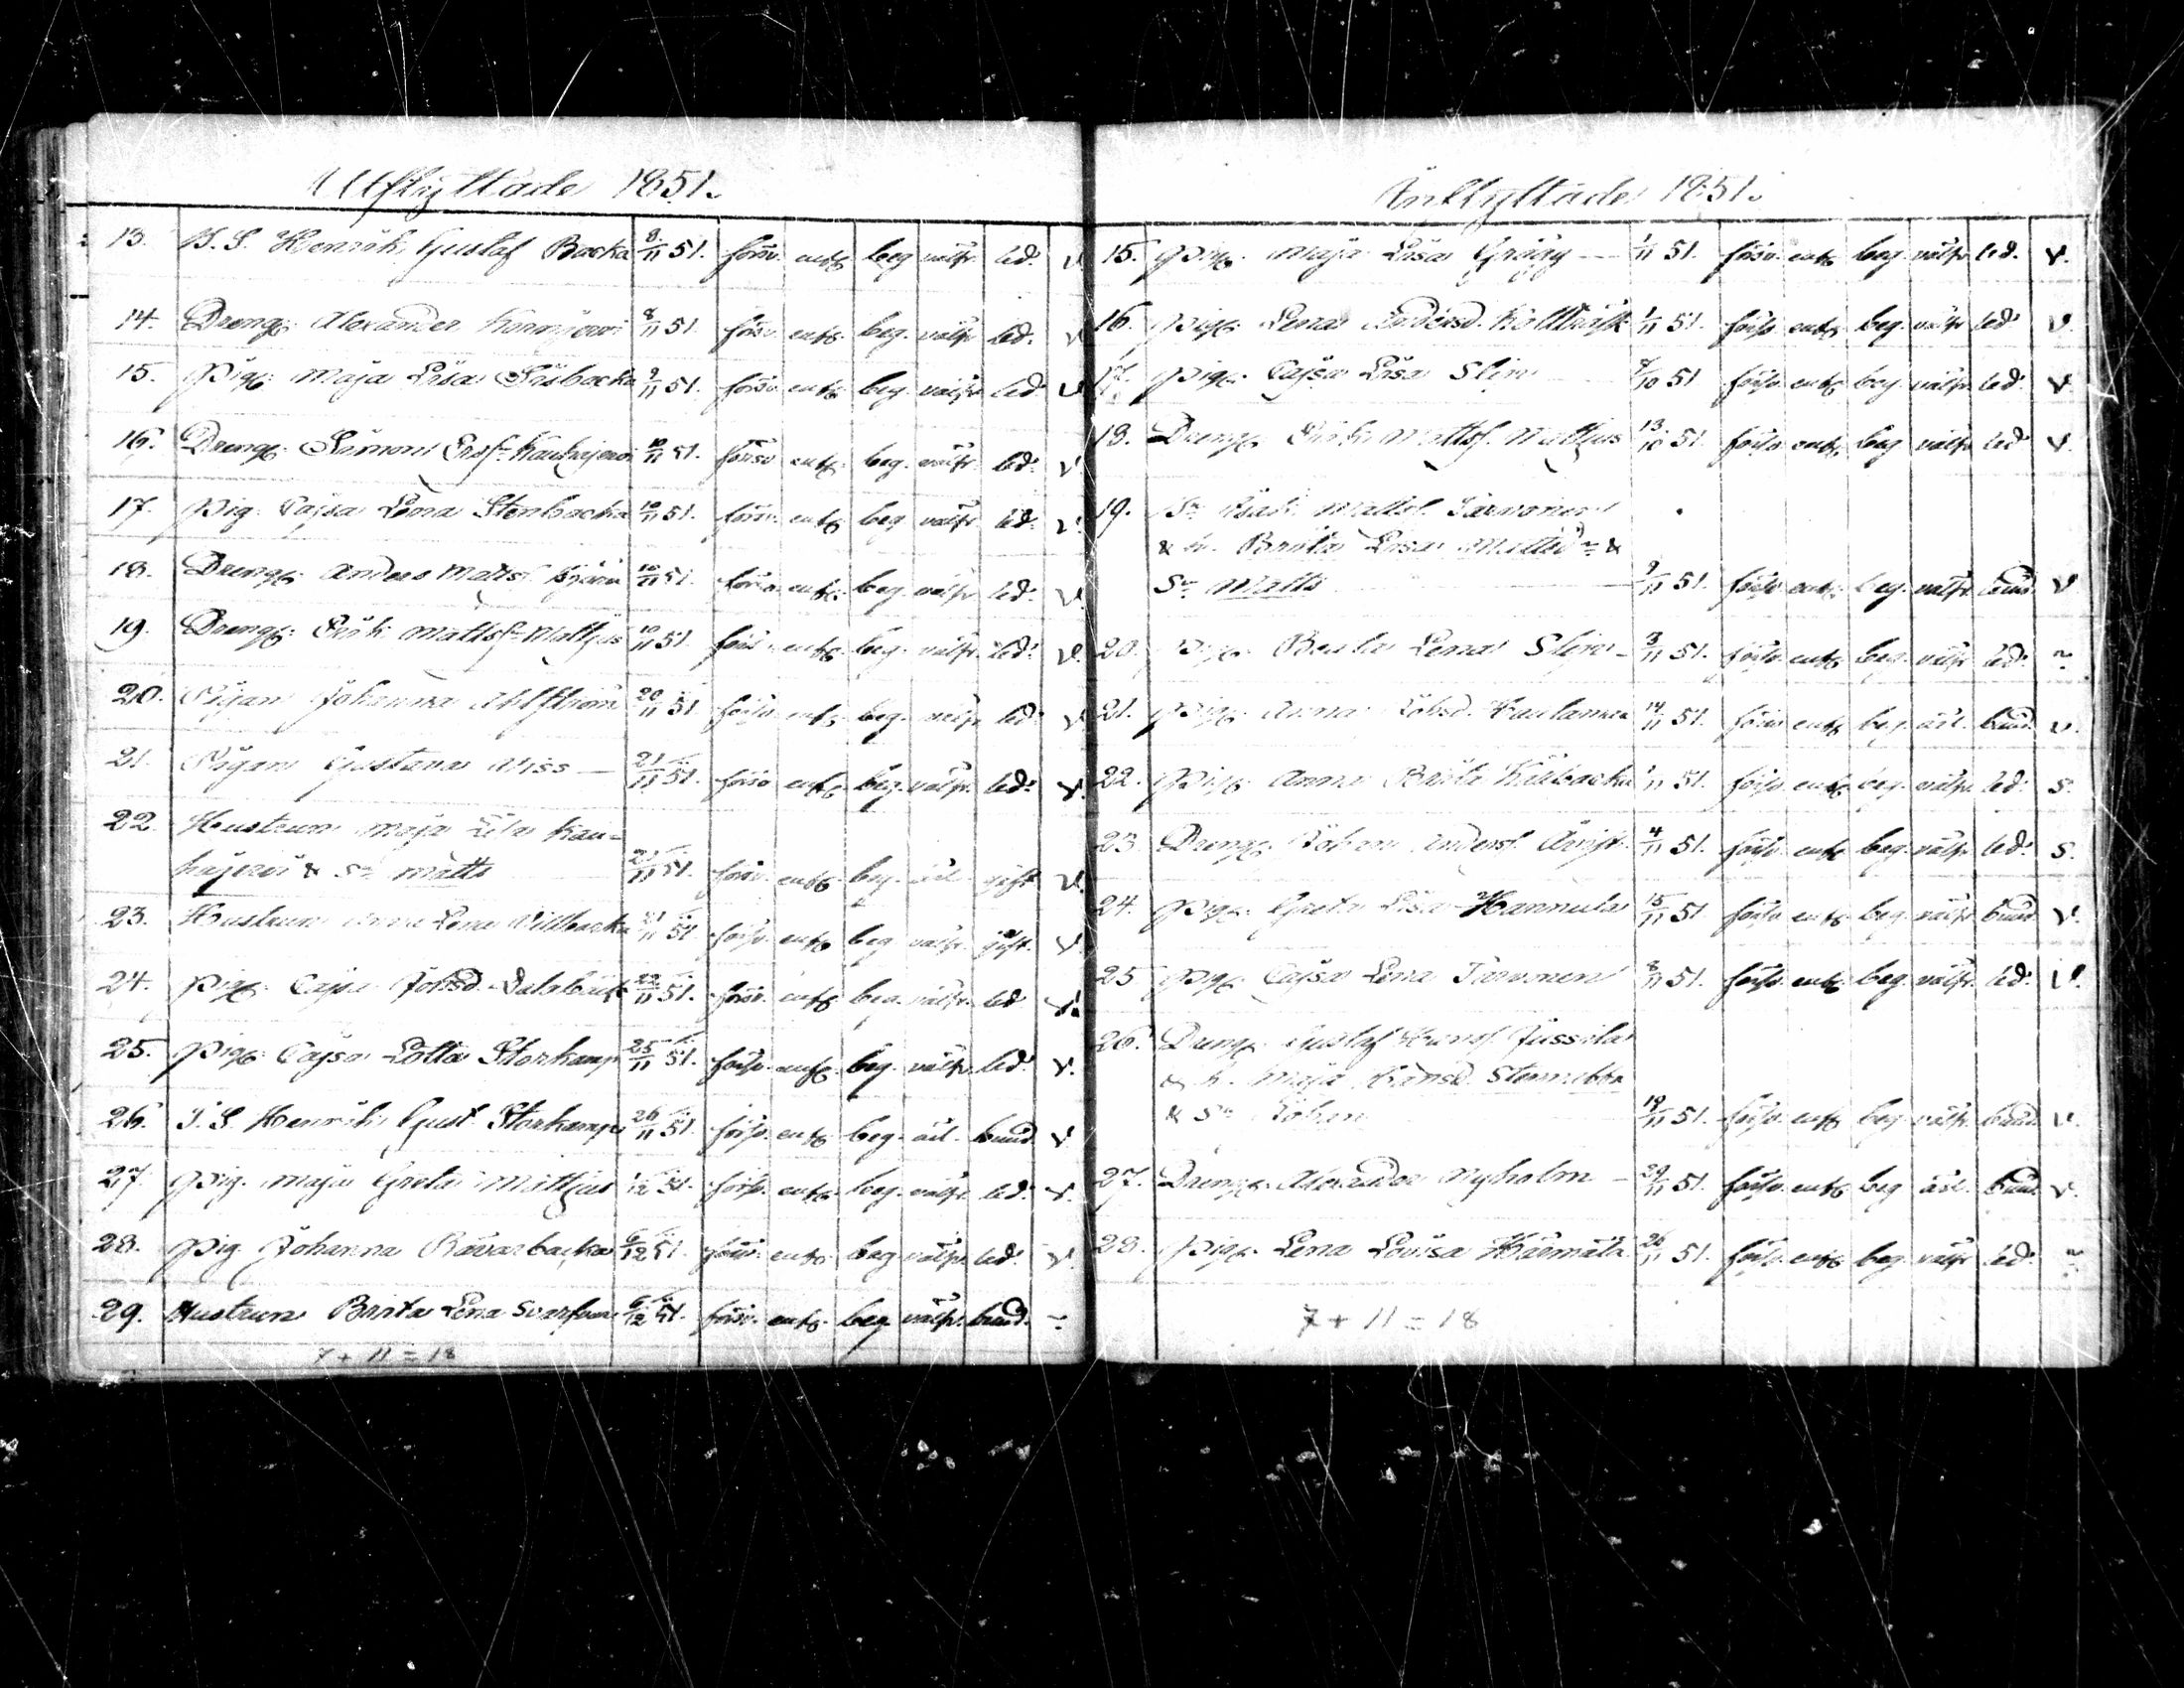 Utflyttade 1851.
13. I. S. Henrik Gustaf Backa 8/11 51. försv. entg. beg. välfr. led. v
14. Dreng. Alexander 8/11 51. försv. entg. beg. välfr. led. v
15. Pig. Maja Lisa Åsbacka 9/11 51. försv. entg. beg. välfr. led. v
16. Dreng. Simon Ersf. Kauhajervi 10/11 51. försv. entg. beg. välfr. led. v.
17. Pig. Cajsa Lena Stenbacka 10/11 51. försv. entg. beg. välfr. led. v.
18. Dreng. Anders Matsf. 10/11 51. försv. entg. beg. välfr. led. v.
19. Dreng. Erik Mattsf. Mattjus 10/11 51. försv. entg. beg. välfr. led. v.
20. Pigan Johanna Ahlström 20/11 51 försv. entg. beg. välfr. led. v
21. Pigan Gustava Wiss — 21/11 51. försv. entg. beg. välfr. led. v.
22. Hustrun Maja Lisa Kau-
hajervi & Sn Matts 21/11 51. försv. entg. beg. gift v.
23. Hustrun Anna Lena Willbacka 21/11 51 försv. entg. beg. välfr. gift. v.
24. Pig. Cajsa Johsd. Dalabäck 22/11 51. försv. entg. beg. välfr. led v.
25. Pig. Cajsa Lotta Storkamp 25/11 51. försv. entg. beg. välfr. led. v.
26. I. S. Henrik Gust. Storkamp 26/11 51. försv. entg. beg. bund. v
27. Pig. Maja Greta Mattjus 1/12 51. försv. entg. beg. välfr. led. v.
28. Pig. Johanna Rävasbacka 6/12 51. försv. entg. beg. välfr. led. v.
29. Hustrun Brita Lena Svarfvar 6/12 51. försv. entg. beg. välfr. bund. ~
7 + 11 = 18
Inflyttade 1851.
15. Pig. Maja Lisa Grägg — 1/11 51. försv. entg. beg. välfr. led. v.
16. Pig. Lena Andersd. Kallträsk 1/11 51. försv. entg. beg. välfr. led. v.
17. Pig. Cajsa Lisa Slim 7/10 51 försv. entg. beg. välfr. led. v.
18. Dreng. Erik Mattsf. Mattjus 13/10 51. försv. entg. beg. välfr. led. v.
19. Isak Mattsf. Tarvonen
& h. Brita Lisa Mattsd. &
Sn Matts 9/11 51. försv. entg. beg. välfr. bund. v
20. Pig. Beata Lena Slim — 3/11 51. försv. entg. beg. välfr. led. ~
21. Pig. Anna Johsd. 14/11 51. försv. entg. beg. bund. v.
22. Pig. Anna Brita 1/11 51. försv. entg. beg. välfr. led. S.
23. Dreng. Johan Andersf. 4/11 51. försv. entg. beg. välfr. led. S.
24. Pig. Greta Lisa Hannula 15/11 51. försv. entg. beg. välfr. bund. v.
25 Pig. Cajsa Lena Tarvonen 8/11 51. försv. entg. beg. välfr. led. v.
26. Dreng. Gustaf Jussila
& h. Maja
& Sn Johan 19/11 51. försv. entg. beg. välfr. bund. v.
27. Dreng. Alexander Nyholm — 29/11 51. försv. entg. beg. bund. v.
28. Pig. Lena Lovisa Härmälä 26/11 51. försv. entg. beg. välfr. led. ~
7 + 11 = 18